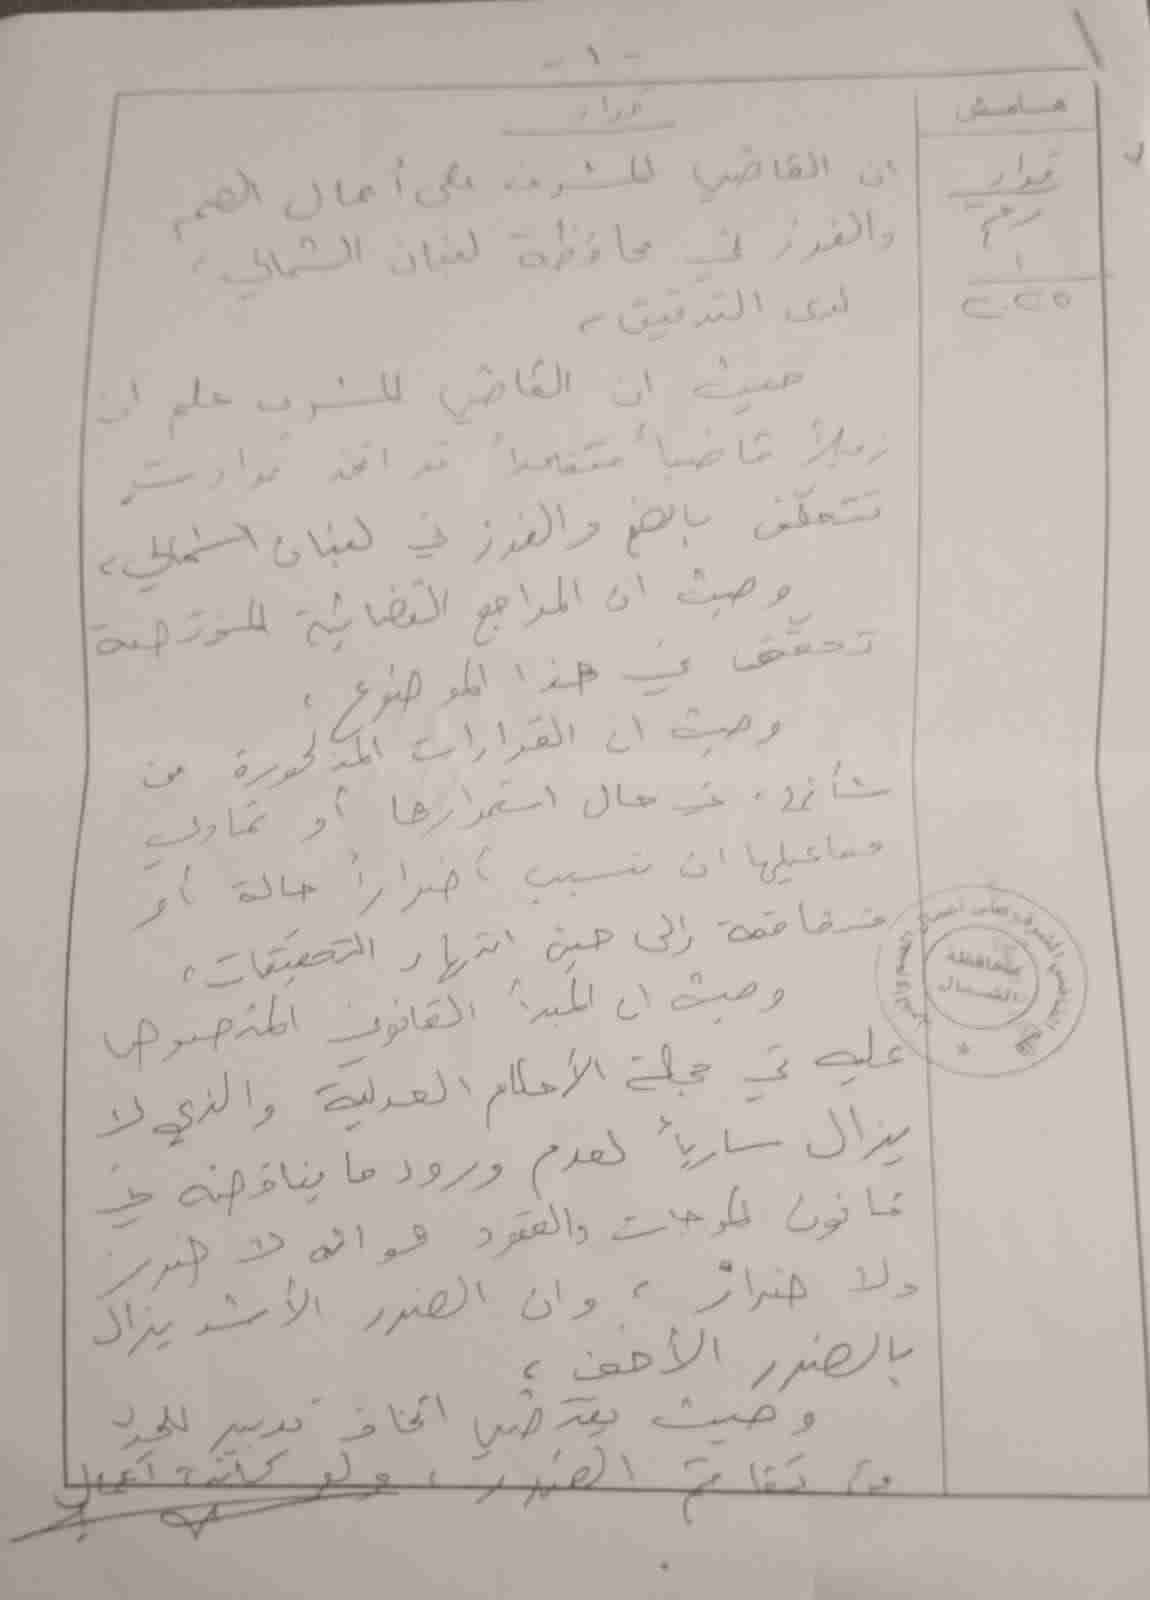 - ١ -
هامش
قرار
رقم
١
٢٠٢٥
قرار
ان القاضي المشرف على أعمال الضم
والفرز في محافظة لبنان الشمالي،
لدى التدقيق،
حيث ان القاضي المشرف علم ان
زميلاً قاضياً متقاعداً قد اتخذ قرارات
تتعلّق بالضم والفرز في لبنان الشمالي،
وحيث ان المراجع القضائية المختصة
تحقّق في هذا الموضوع،
وحيث ان القرارات المذكورة من
شأنها، في حال استمرارها أو تمادي
مفاعيلها ان تسبب أضراراً حالة أو
متفاقمة إلى حين انتهاء التحقيقات،
وحيث ان المبدأ القانوني المنصوص
عليه في مجلة الأحكام العدلية والذي لا
يزال سارياً لعدم ورود ما يناقضه في
قانون الموجبات والعقود هو انه لا ضرر
ولا ضرار، وان الضرر الأشد يزال
بالضرر الأخف،
وحيث يقتضي اتخاذ تدبير للحدّ
من تفاقم الضرر، ولو كانت أعمال
القاضي المشرف على أعمال
محافظة
الشمال